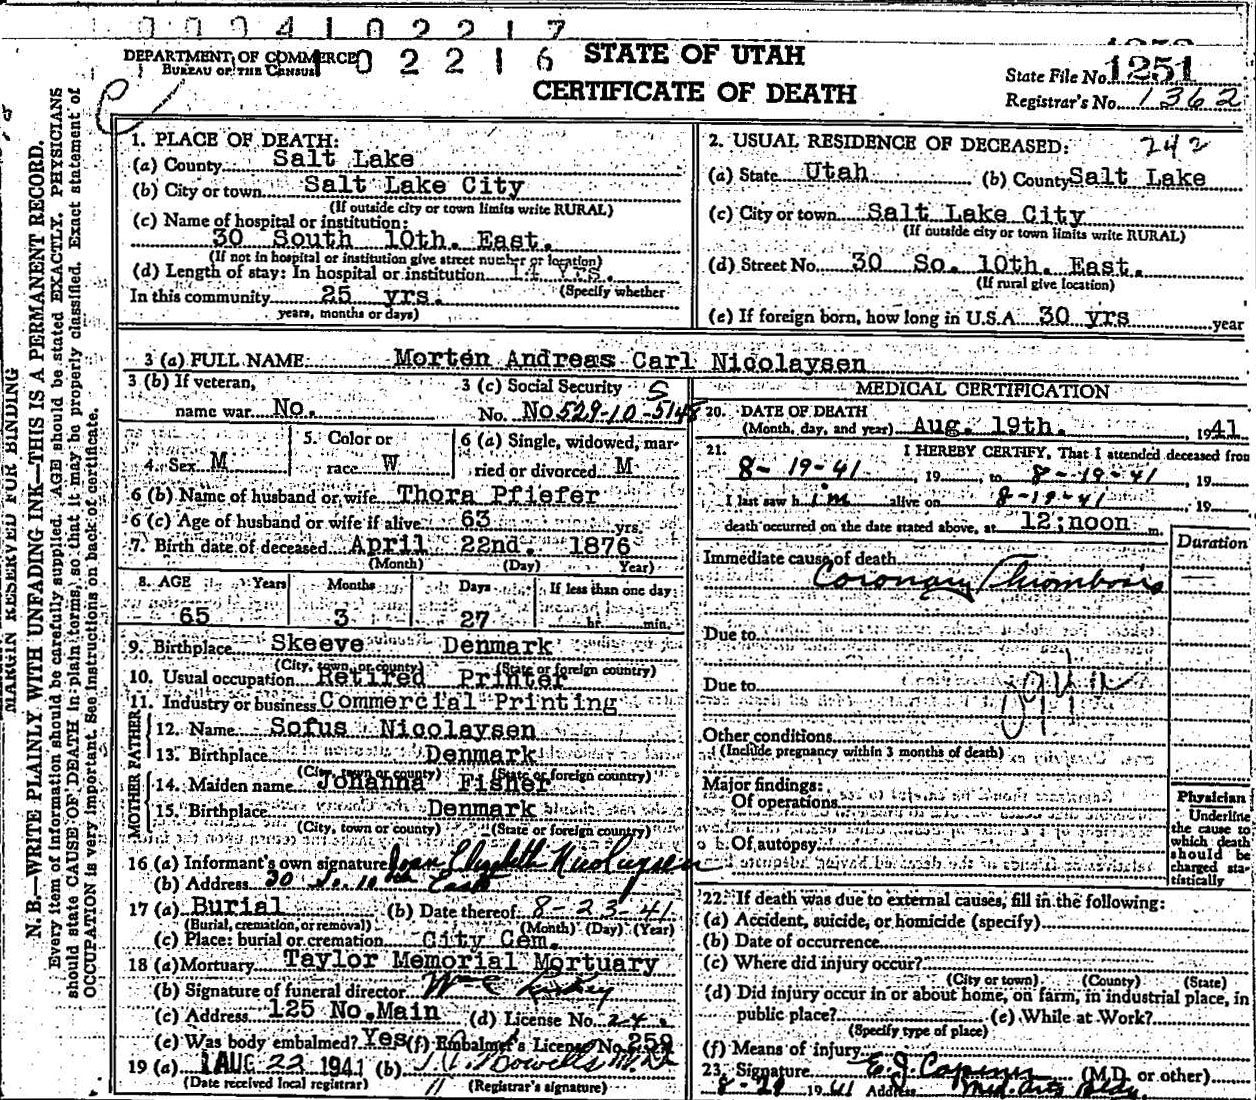 0 0 0 4 1 0 2 2 1 7
DEPARTMENT OF COMMERCE
BUREAU OF THE CENSUS
1 0 2 2 1 6
STATE OF UTAH
CERTIFICATE OF DEATH
State File No. 1251
Registrar's No. 1362
MARGIN RESERVED FOR BINDING
N. B.—WRITE PLAINLY WITH UNFADING INK—THIS IS A PERMANENT RECORD.
Every item of information should be carefully supplied. AGE should be stated EXACTLY. PHYSICIANS
should state CAUSE OF DEATH in plain terms, so that it may be properly classified. Exact statement of
OCCUPATION is very important. See instructions on back of certificate.
1. PLACE OF DEATH:
(a) County Salt Lake
(b) City or town Salt Lake City
(If outside city or town limits write RURAL)
(c) Name of hospital or institution:
30 South 10th. East.
(If not in hospital or institution give street number or location)
(d) Length of stay: In hospital or institution yrs.
(Specify whether
In this community 25 yrs.
years, months or days)
2. USUAL RESIDENCE OF DECEASED: 242
(a) State Utah (b) County Salt Lake
(c) City or town Salt Lake City
(If outside city or town limits write RURAL)
(d) Street No. 30 So. 10th. East.
(If rural give location)
(e) If foreign born, how long in U.S.A. 30 yrs year
3 (a) FULL NAME Morten Andreas Carl Nicolaysen
3 (b) If veteran,
name war No.
3 (c) Social Security S
No. No. 529-10-5148
4. Sex M
5. Color or
race W
6 (a) Single, widowed, mar-
ried or divorced M
6 (b) Name of husband or wife Thora Pfiefer
6 (c) Age of husband or wife if alive 63 yrs.
7. Birth date of deceased April 22nd. 1876
(Month) (Day) Year)
8. AGE Years Months Days If less than one day:
65 3 27 hr. min.
9. Birthplace Skeeve Denmark
(City, town, or county) (State or foreign country)
10. Usual occupation Retired Printer
11. Industry or business Commercial Printing
FATHER
12. Name Sofus Nicolaysen
13. Birthplace Denmark
(City, town or county) (State or foreign country)
MOTHER
14. Maiden name Johanna Fisher
15. Birthplace Denmark
(City, town or county) (State or foreign country)
16 (a) Informant's own signature Joan Elizabeth Nicolaysen
(b) Address 30 So. 10th East
17 (a) Burial (b) Date thereof 8-23-41
(Burial, cremation, or removal) (Month) (Day) (Year)
(c) Place: burial or cremation City Cem.
18 (a) Mortuary Taylor Memorial Mortuary
(b) Signature of funeral director Wm E
(c) Address 125 No. Main (d) License No. 24
(e) Was body embalmed? Yes (f) Embalmer's License No. 259
19 (a) AUG 22 1941 (b)
(Date received local registrar) (Registrar's signature)
MEDICAL CERTIFICATION
20. DATE OF DEATH
(Month, day, and year) Aug. 19th. , 1941
21. I HEREBY CERTIFY, That I attended deceased from
8-19-41 , 19 , to 8-19-41 , 19
I last saw h im alive on 8-19-41 , 19
death occurred on the date stated above, at 12;noon m.
Duration
Immediate cause of death
Coronary Thrombosis
Due to
Due to
Other conditions
(Include pregnancy within 3 months of death)
Major findings:
Of operations
Of autopsy
Physician
Underline
the cause to
which death
should be
charged sta-
tistically
22. If death was due to external causes, fill in the following:
(a) Accident, suicide, or homicide (specify)
(b) Date of occurrence
(c) Where did injury occur?
(City or town) (County) (State)
(d) Did injury occur in or about home, on farm, in industrial place, in
public place? (e) While at Work?
(Specify type of place)
(f) Means of injury
23. Signature E. J. (M.D. or other)
1941 Address Med. Arts Bldg.